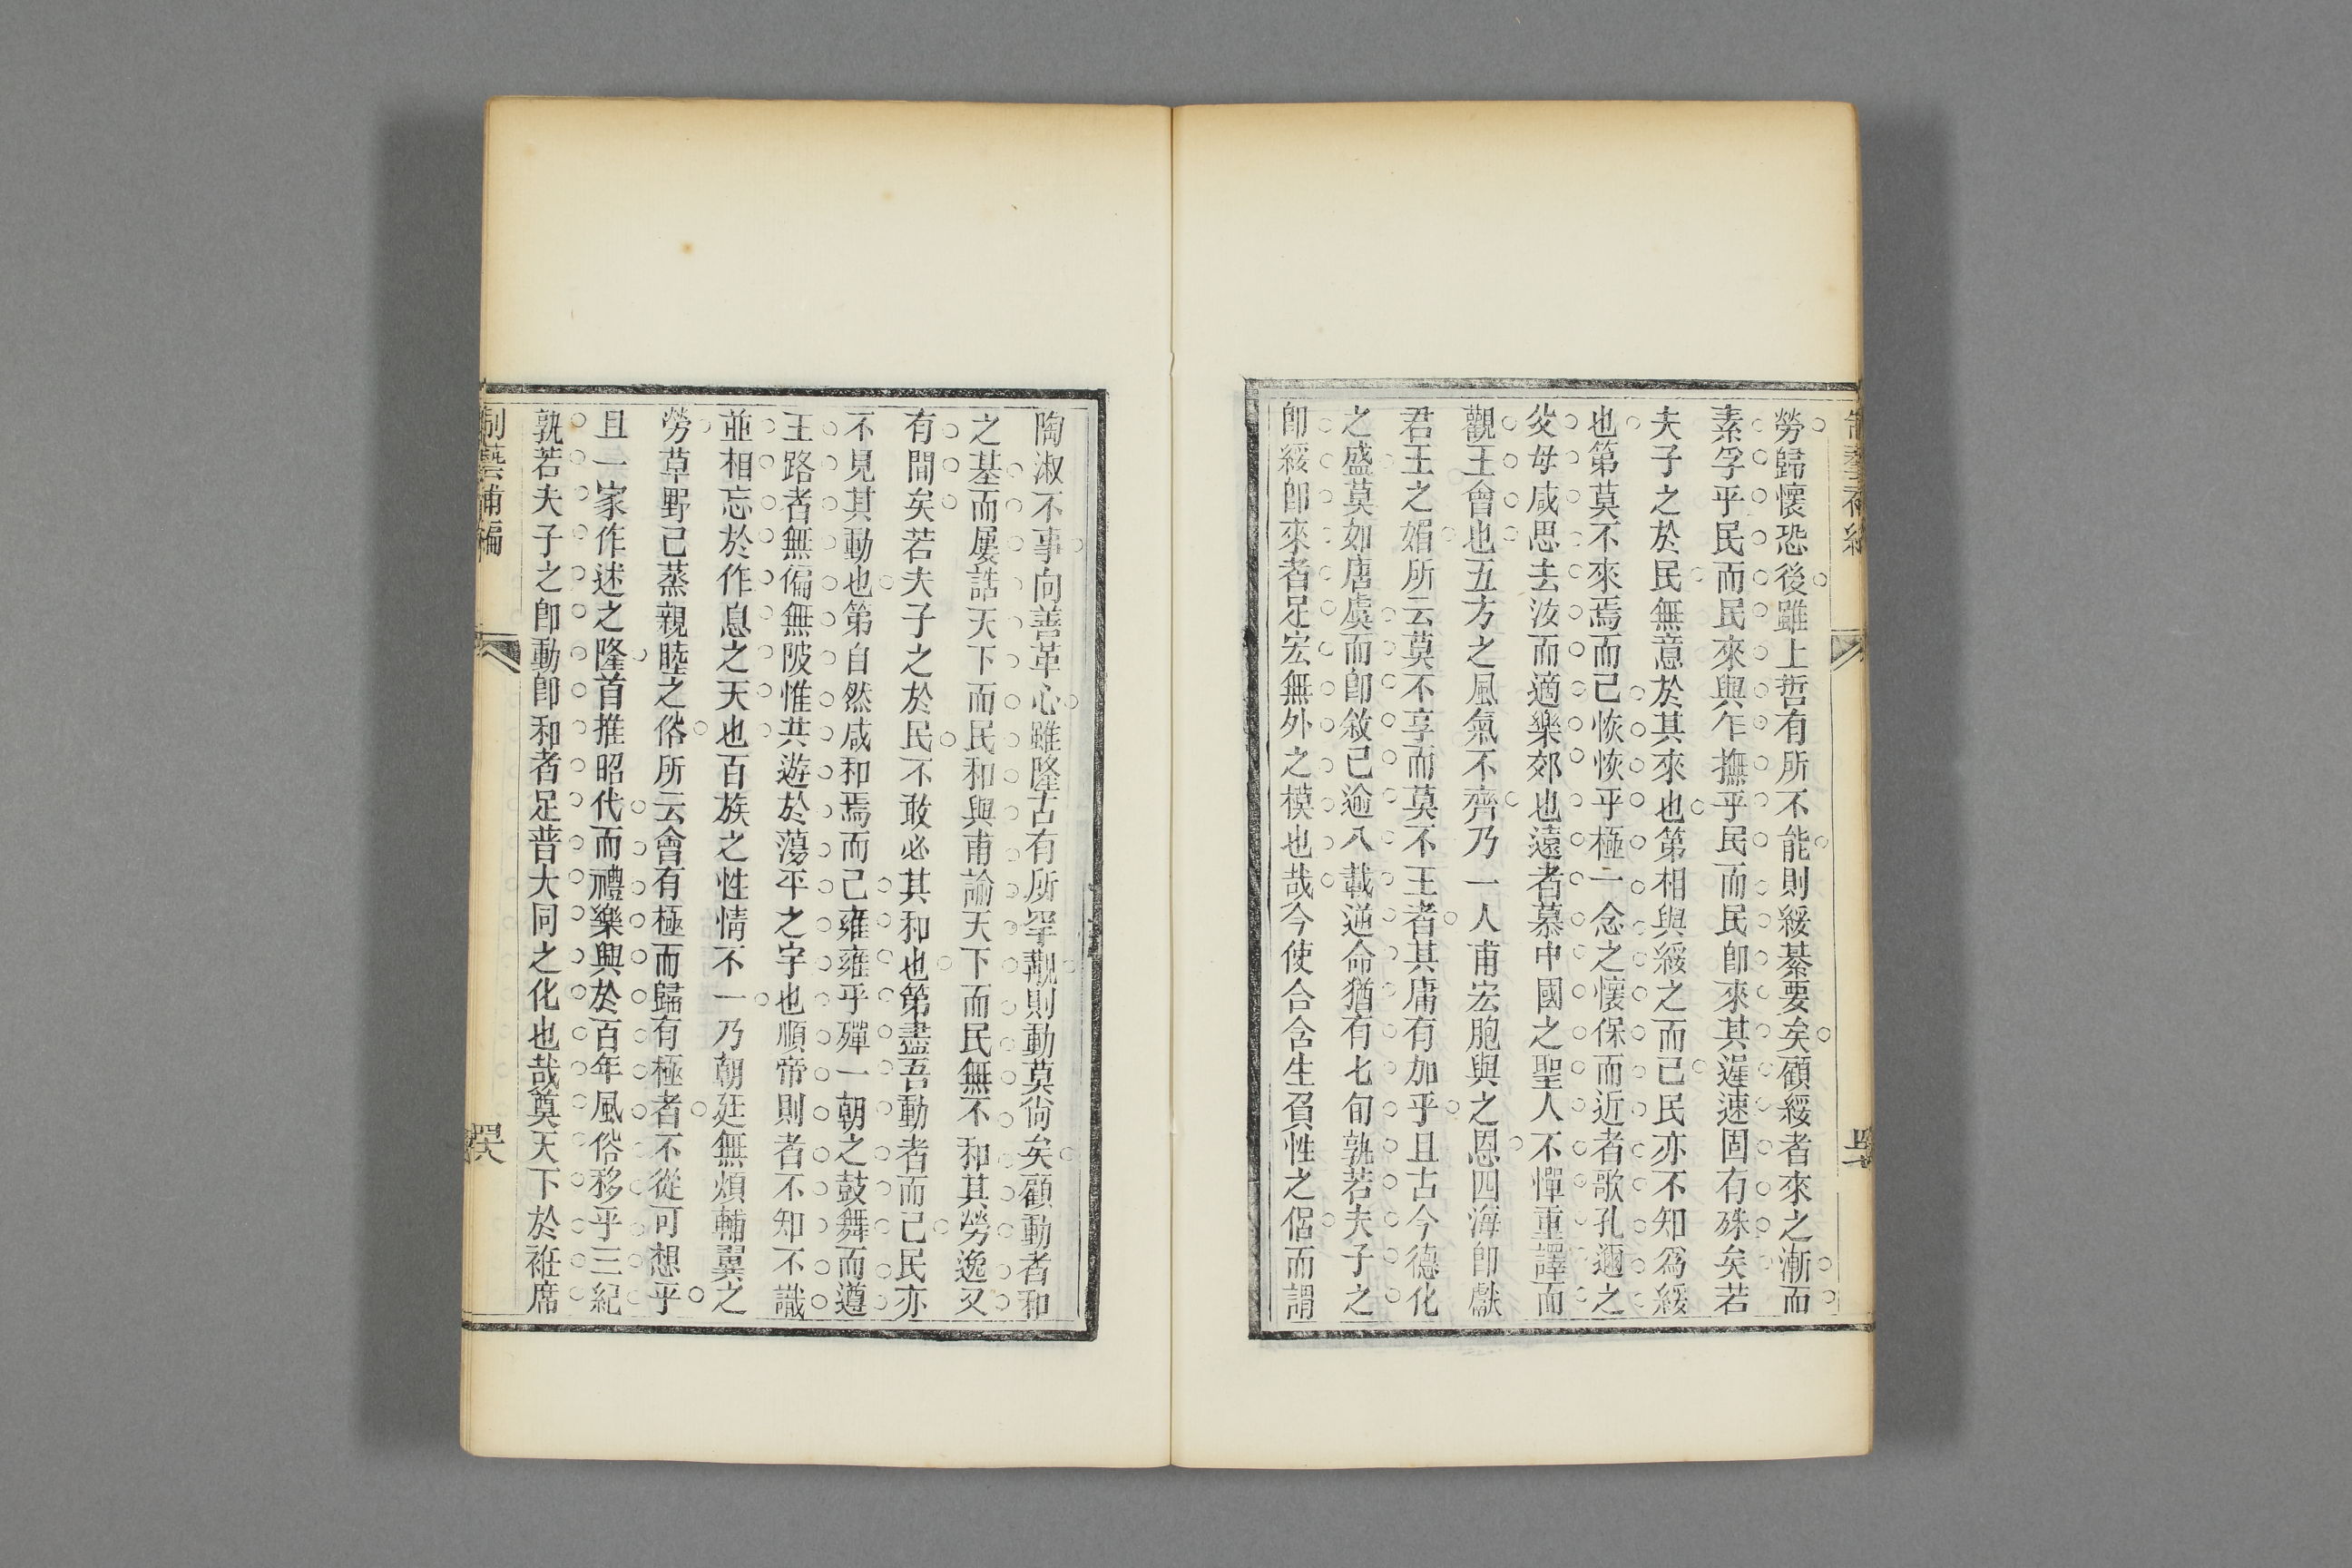 勞歸懷恐後雖上哲有所不能則綏綦要矣顧綏者來之漸而
素孚乎民而民來與乍撫乎民而民卽來其遲速固有殊矣若
夫子之於民無意於其來也第相與綏之而已民亦不知爲綏
也第莫不來焉而已恢恢乎極一念之懷保而近者歌孔邇之
父母咸思去汝而適樂郊也遠者慕中國之聖人不憚重譯而
觀王會也五方之風氣不齊乃一人甫宏胞與之恩四海卽獻
君王之媚所云莫不享而莫不王者其庸有加乎且古今德化
之盛莫如唐虞而卽敘已逾八載逆命猶有七旬孰若夫子之
卽綏卽來者足宏無外之模也哉今使合含生負性之儔而謂
陶淑不事向善革心雖隆古有所罕覯則動莫尙矣顧動者和
之基而屢誥天下而民和與甫諭天下而民無不和其勞逸又
有間矣若夫子之於民不敢必其和也第盡吾動者而已民亦
不見其動也第自然咸和焉而已雍雍乎殫一朝之鼓舞而遵
王路者無偏無陂惟共遊於蕩平之宇也順帝則者不知不識
並相忘於作息之天也百族之性情不一乃朝廷無煩輔翼之
勞草野已蒸親睦之俗所云會有極而歸有極者不從可想乎
且一家作述之隆首推昭代而禮樂興於百年風俗移乎三紀
孰若夫子之卽動卽和者足普大同之化也哉奠天下於袵席
制藝補編